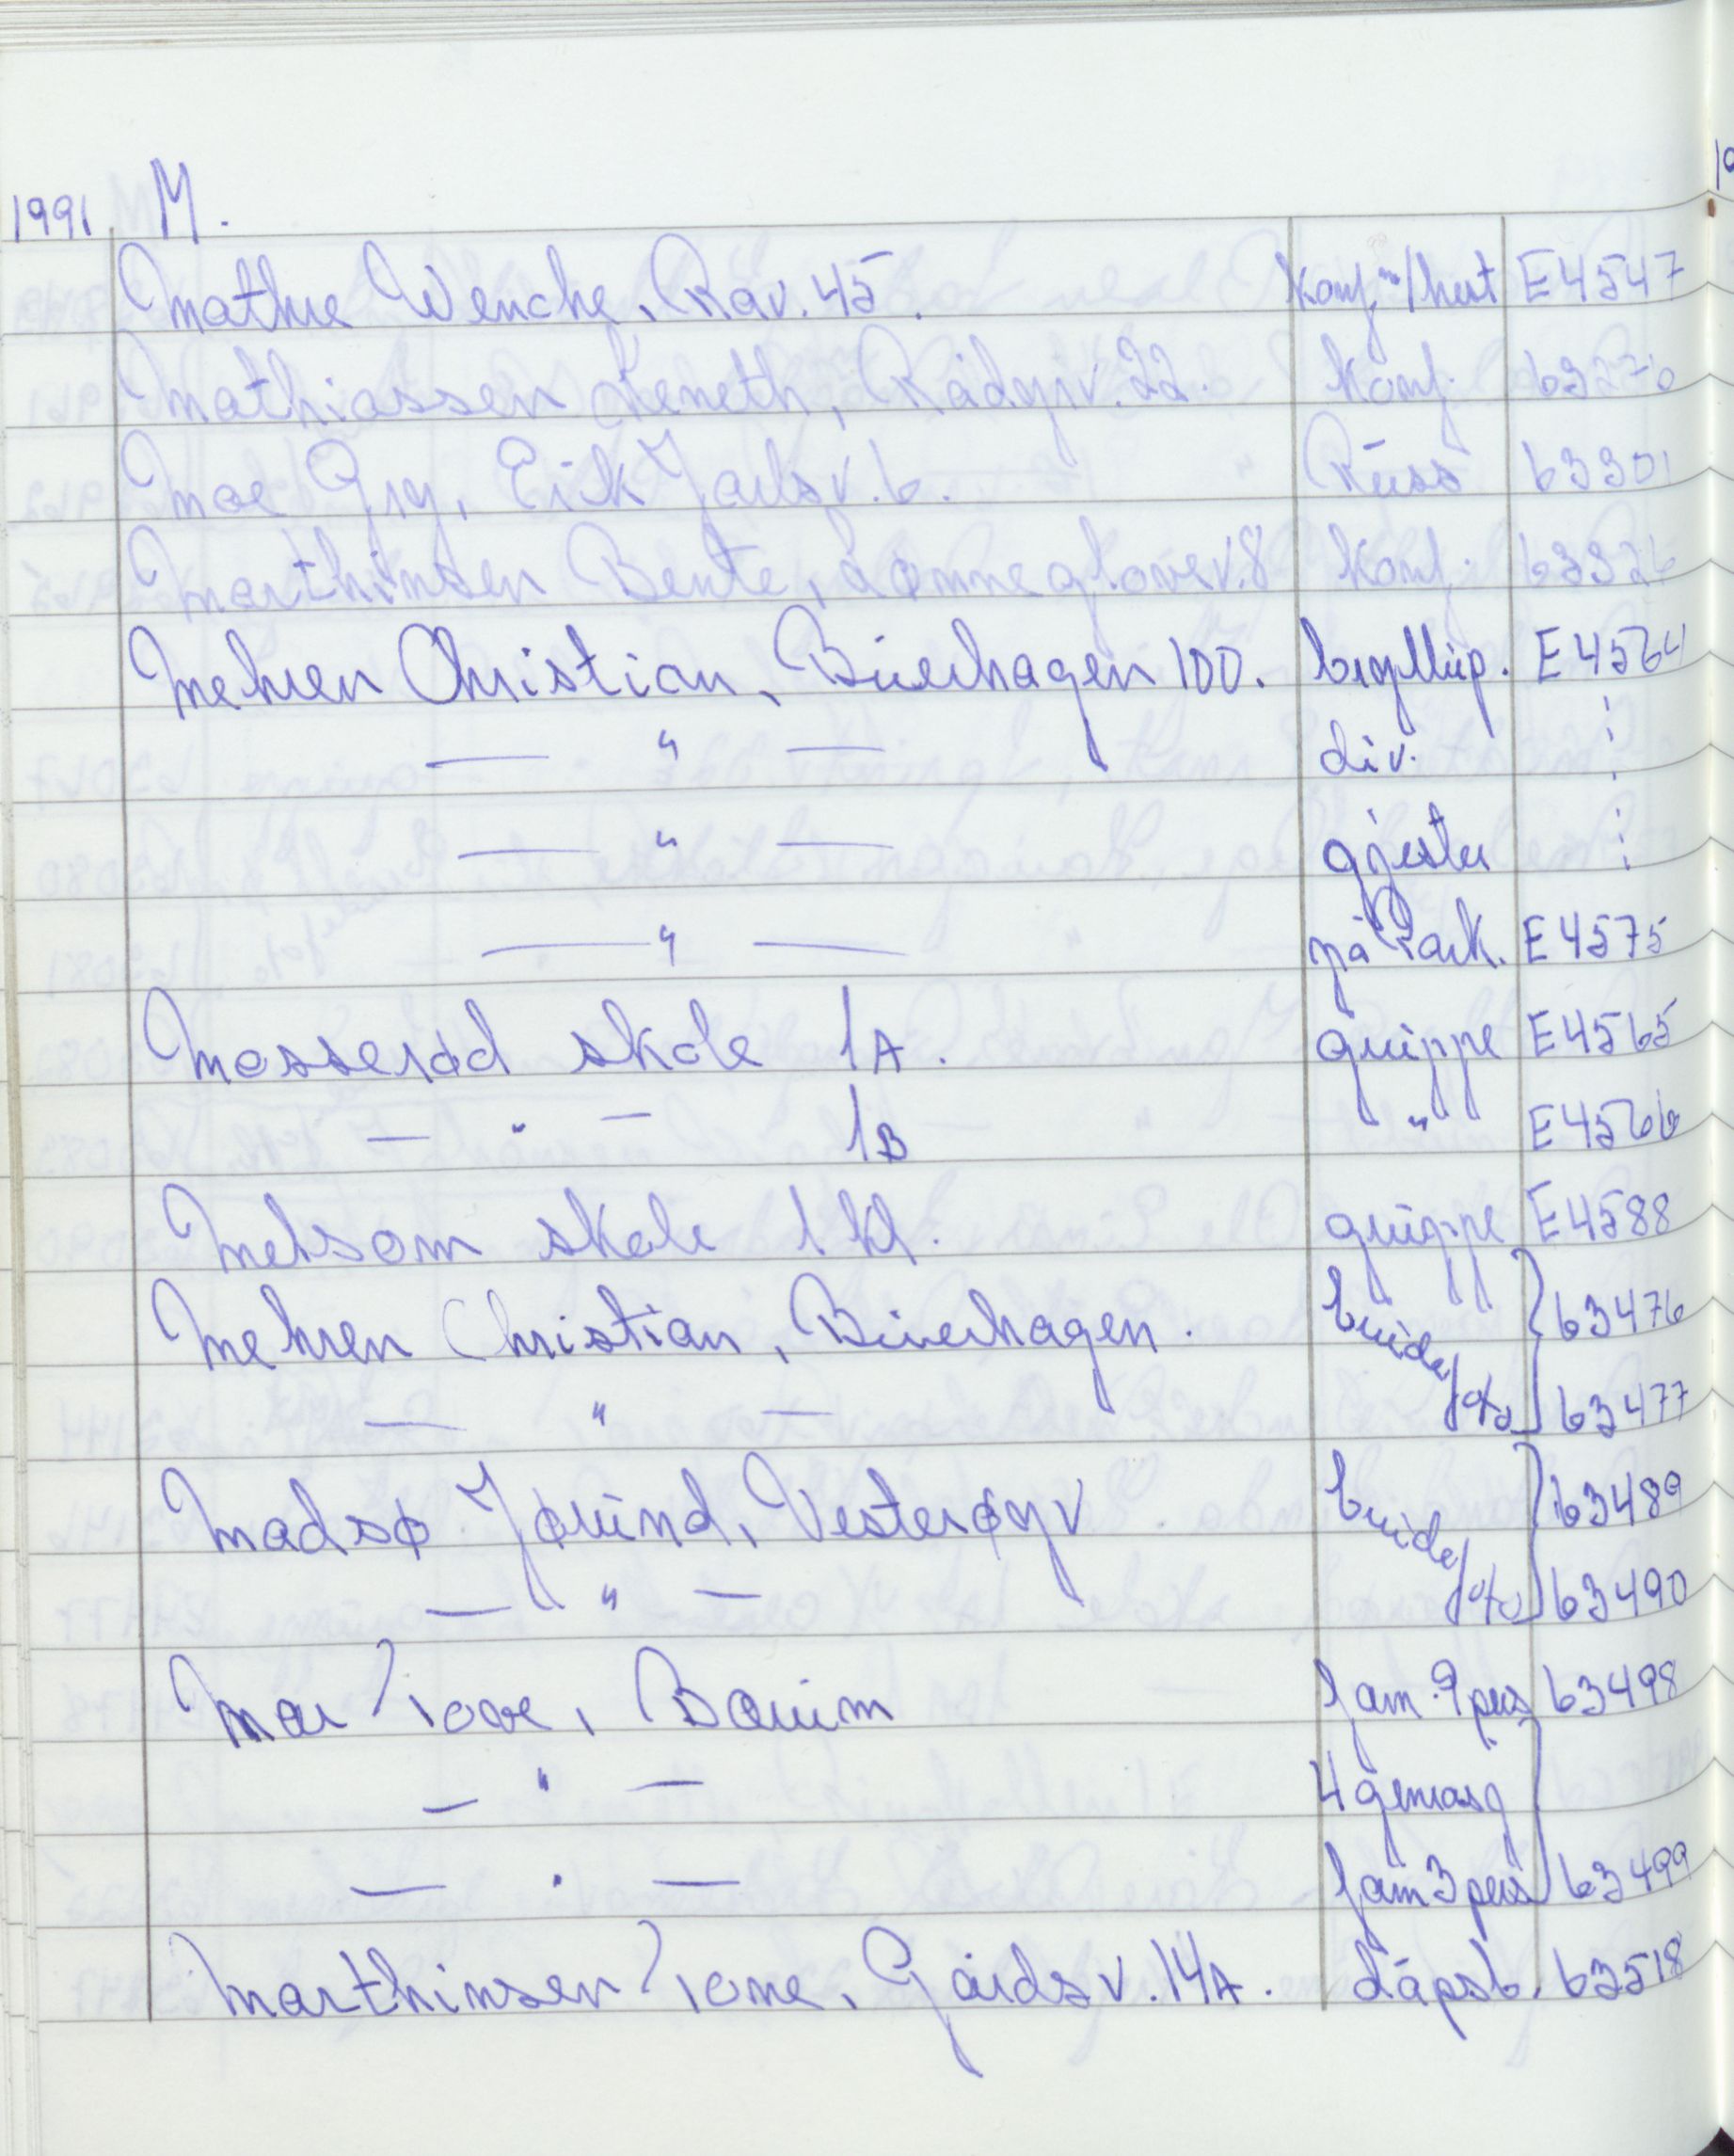 1991 M.
Mathre Wenche, Rav. 45. Konf. m/hest E4547
Mathiassen Keneth, Rådyrv. 22. Konf. 63270
Moe Gry, Eirik Jarlsv. 6. Russ 63301
Marthinsen Bente, Lønneglovev. 8 Konf. 63326
Mehren Christian, Buerhagen 100. bryllup. E4564
— " — div.
— " — gjester
— " — på Park. E4575
Mosserød skole 1A. gruppe E4565
— " — 1B " E4566
Melsom skole 1 kl. gruppe E4588
Mehren Christian, Buerhagen. brude/ 63476
— " — 63477
Madsø Jørund, Vesterøyv brude/ 63489
— " — 63490
Mar Tove, Bærum fam. 9 pers 63498
— " — 4 generasj
— " — fam 3 pers 63499
Marthinsen Tone, Gårdsv. 14A. dåpsb. 63518